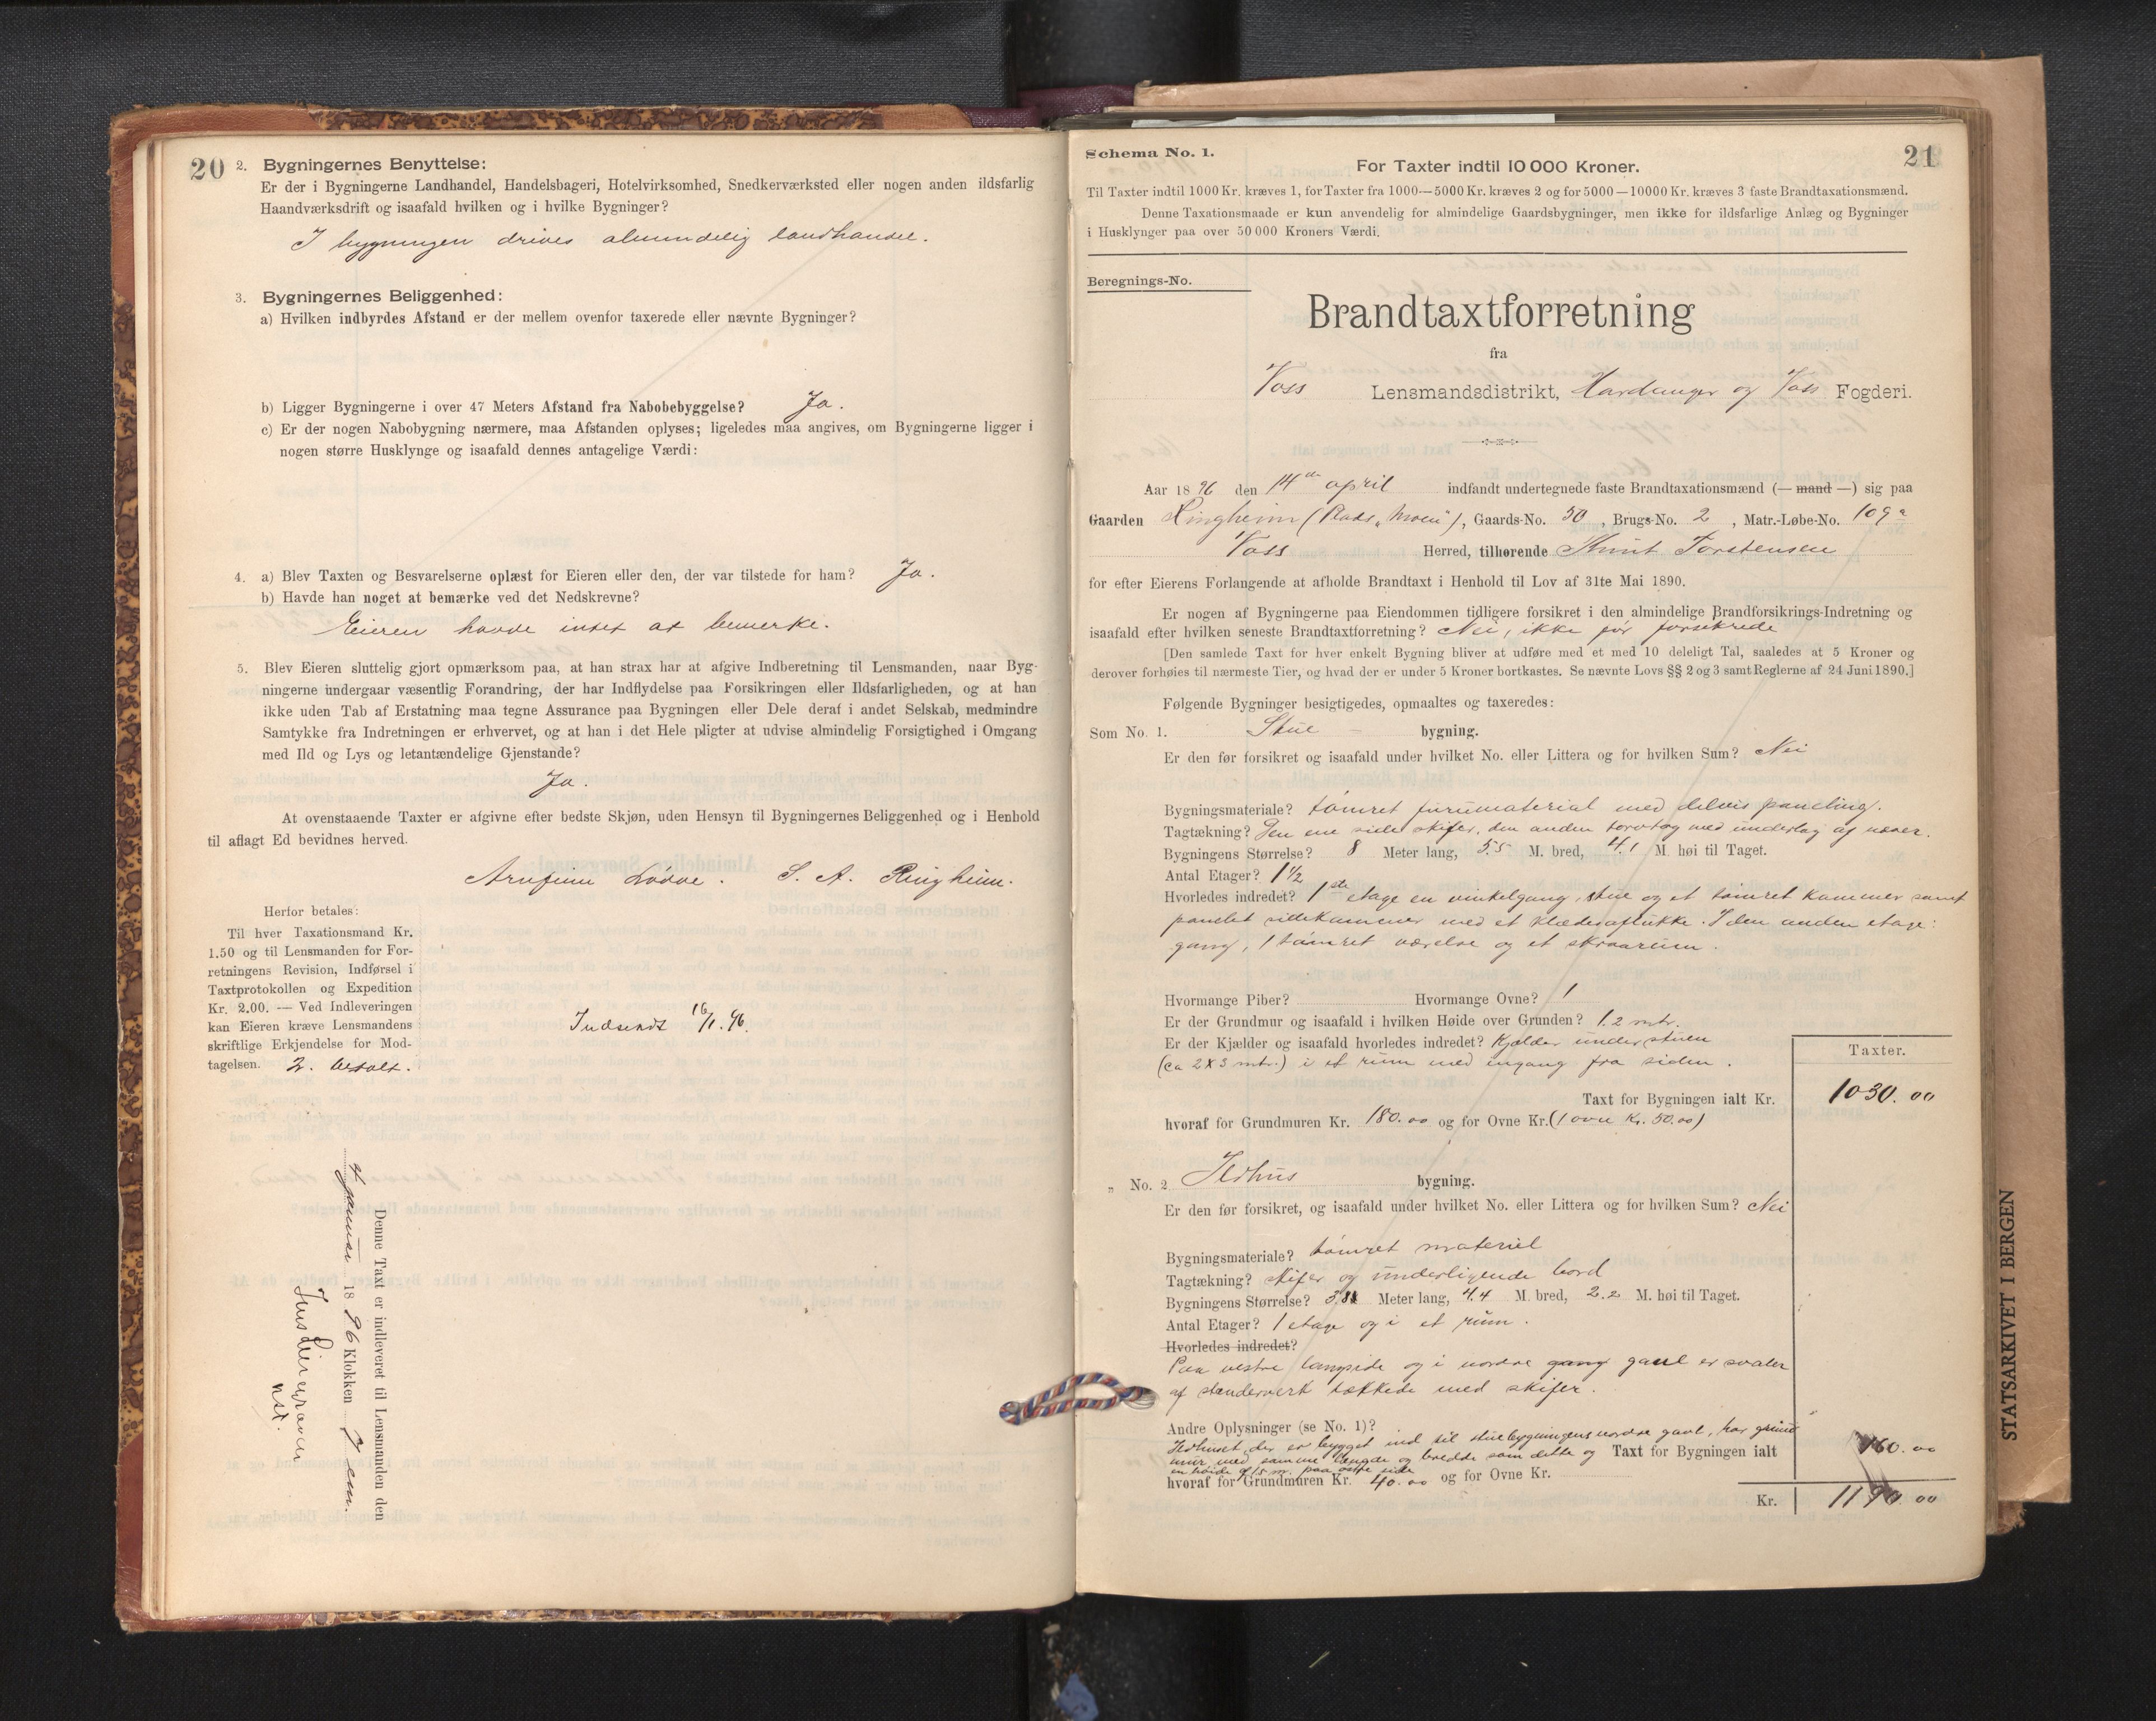 20
2. Bygningernes Benyttelse:
Er der i Bygningerne Landhandel, Handelsbageri, Hotelvirksomhed, Snedkerværksted eller nogen anden ildsfarlig
Haandværksdrift og isaafald hvilken og i hvilke Bygninger?
I bygningen drives almindelig landhandel.
3. Bygningernes Beliggenhed:
a) Hvilken indbyrdes Afstand er der mellem ovenfor taxerede eller nævnte Bygninger?
b) Ligger Bygningerne i over 47 Meters Afstand fra Nabobebyggelse? Ja.
c) Er der nogen Nabobygning nærmere, maa Afstanden oplyses; ligeledes maa angives, om Bygningerne ligger i
nogen større Husklynge og isaafald dennes antagelige Værdi:
4. a) Blev Taxten og Besvarelserne oplæst for Eieren eller den, der var tilstede for ham? Ja.
b) Havde han noget at bemærke ved det Nedskrevne?
Eieren havde intet at bemerke.
5. Blev Eieren sluttelig gjort opmærksom paa, at han strax har at afgive Indberetning til Lensmanden, naar Byg-
ningerne undergaar væsentlig Forandring, der har Indflydelse paa Forsikringen eller Ildsfarligheden, og at han
ikke uden Tab af Erstatning maa tegne Assurance paa Bygningen eller Dele deraf i andet Selskab, medmindre
Samtykke fra Indretningen er erhvervet, og at han i det Hele pligter at udvise almindelig Forsigtighed i Omgang
med Ild og Lys og letantændelige Gjenstande?
Ja.
At ovenstaaende Taxter er afgivne efter bedste Skjøn, uden Hensyn til Bygningernes Beliggenhed og i Henhold
til aflagt Ed bevidnes herved.
Arnfinn Lødve. S. A. Ringheim.
Herfor betales:
Til hver Taxationsmand Kr.
1.50 og til Lensmanden for For-
retningens Revision, Indførsel i
Taxtprotokollen og Expedition
Kr. 2.00. — Ved Indleveringen
kan Eieren kræve Lensmandens
skriftlige Erkjendelse for Mod-
tagelsen. 2. betalt.
Indsendt 16/1. 96.
Denne Taxt er indleveret til Lensmanden den
januar 1896 Klokken 7 em.
21
Schema No. 1.
For Taxter indtil 10 000 Kroner.
Til Taxter indtil 1000 Kr. kræves 1, for Taxter fra 1000—5000 Kr. kræves 2 og for 5000—10000 Kr. kræves 3 faste Brandtaxationsmænd.
Denne Taxationsmaade er kun anvendelig for almindelige Gaardsbygninger, men ikke for ildsfarlige Anlæg og Bygninger
i Husklynger paa over 50 000 Kroners Værdi.
Beregnings-No.
Brandtaxtforretning
fra
Voss Lensmandsdistrikt, Hardanger og Voss Fogderi.
Aar 1896 den 14de april indfandt undertegnede faste Brandtaxationsmænd (— mand —) sig paa
Gaarden Ringheim (Plads „Moen"), Gaards-No. 50, Brugs-No. 2, Matr.-Løbe-No. 109a
Voss Herred, tilhørende Knut Torstensen
for efter Eierens Forlangende at afholde Brandtaxt i Henhold til Lov af 31te Mai 1890.
Er nogen af Bygningerne paa Eiendommen tidligere forsikret i den almindelige Brandforsikrings-Indretning og
isaafald efter hvilken seneste Brandtaxtforretning? Nei, ikke før forsikrede
[Den samlede Taxt for hver enkelt Bygning bliver at udføre med et med 10 deleligt Tal, saaledes at 5 Kroner og
derover forhøies til nærmeste Tier, og hvad der er under 5 Kroner bortkastes. Se nævnte Lovs §§ 2 og 3 samt Reglerne af 24 Juni 1890.]
Følgende Bygninger besigtigedes, opmaaltes og taxeredes:
Som No. 1. Stue - bygning.
Er den før forsikret og isaafald under hvilket No. eller Littera og for hvilken Sum? Nei
Bygningsmateriale? tømret furumaterial med delvis paneling.
Tagtækning? Den ene side skifer, den anden torvtag med underlag af næver.
Bygningens Størrelse? 8 Meter lang, 5.5 M. bred, 4.1 M. høi til Taget.
Antal Etager? 1½
Hvorledes indredet? 1ste etage en vinkelgang, stue og et tømret kammer samt
panelet sidekammer med et klædesaflukke. I den anden etage:
gang, 1 tømret værelse og et skraarum.
Hvormange Piber? Hvormange Ovne? 1
Er der Grundmur og isaafald i hvilken Høide over Grunden? 1.2 mtr.
Er der Kjælder og isaafald hvorledes indredet? Kjælder under stuen
(ca 2x3 mtr.) i et rum med ingang fra siden.
Taxter.
Taxt for Bygningen ialt Kr. 1030.00
hvoraf for Grundmuren Kr. 180.00 og for Ovne Kr. (1 ovn Kr. 50.00)
„ No. 2 Ildhus bygning.
Er den før forsikret, og isaafald under hvilket No. eller Littera og for hvilken Sum? Nei
Bygningsmateriale? tømret materiel
Tagtækning? skifer og underliggende bord
Bygningens Størrelse? 3.8 Meter lang, 4.4 M. bred, 2.2 M. høi til Taget.
Antal Etager? 1 etage og i et rum.
Hvorledes indredet?
Paa vestre langside og i nordre gang gavl er svaler
af stenderverk tækkede med skifer.
Andre Oplysninger (se No. 1)?
Ildhuset, der er bygget ind til stuebygningens nordre gavl, har grund
mur med samme længde og bredde som dette og Taxt for Bygningen ialt 160.00
en høide af 1.5 m. paa østre side
hvoraf for Grundmuren Kr. 40.00 og for Ovne Kr.
Kr. 1190.00
STATSARKIVET I BERGEN